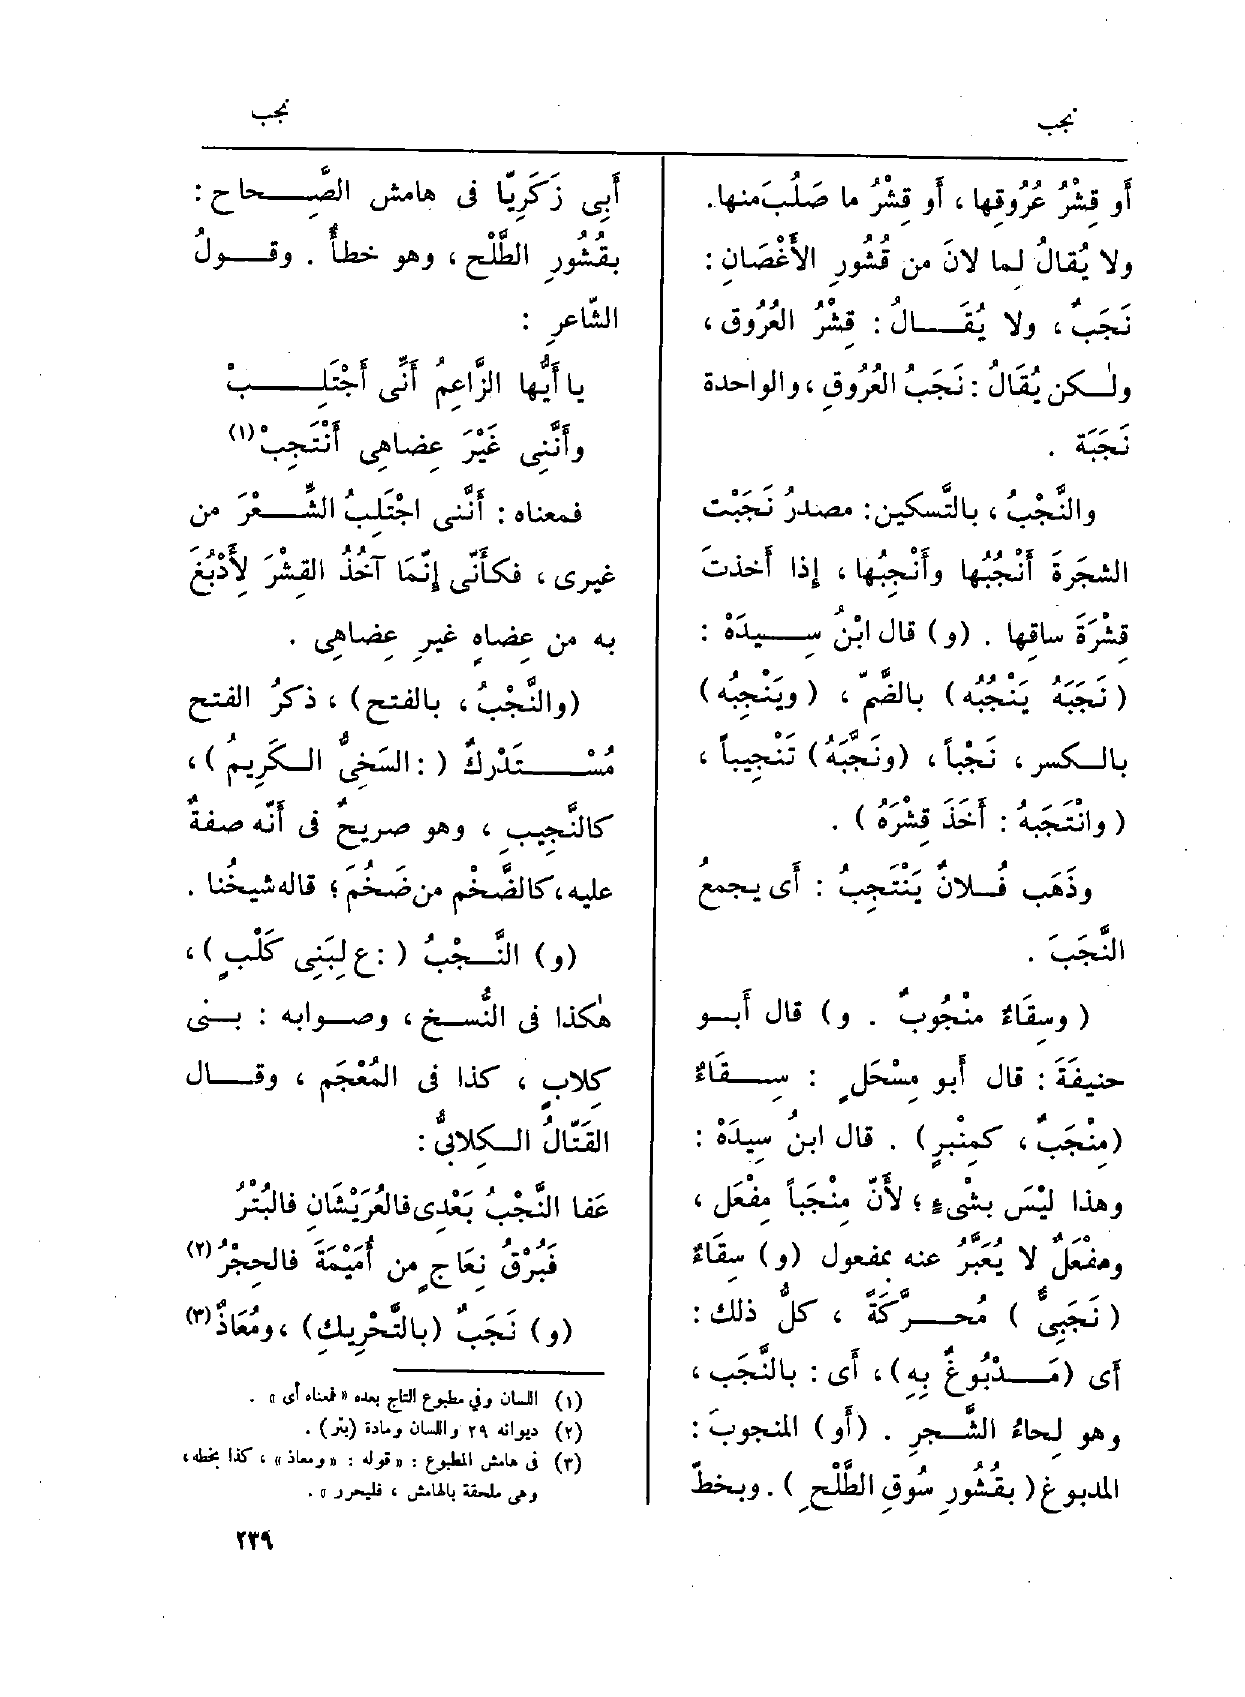 نجب
نجب
أو قِشْرُ عُرُوقِها ، أو قِشْرُ ما صَلُبَ منها.
ولا يُقالُ لما لانَ من قُشُورِ الأَغْصَانِ :
نَجَبٌ ، ولا يُقَالُ : قِشْرُ العُرُوق ،
ولٰكن يُقَالُ : نَجَبُ العُرُوقِ ، والواحدة
نَجَبَة .
والنَّجْبُ ، بالتَّسكين : مصدرُ نَجَبْت
الشجَرةَ أَنْجُبُها وأَنْجِبُها ، إذا أَخذتَ
قِشْرَةَ ساقِها . (و) قال ابْنُ سِيدَهْ :
(نَجَبَهُ يَنْجُبُه) بالضَّمّ ، (ويَنْجِبُه)
بالكسر ، نَجْباً ، (ونَجَّبَهُ) تَنْجِيباً ،
(وانْتَجَبهُ : أَخَذَ قِشْرَهُ) .
وذَهَب فُلانٌ يَنْتَجِبُ : أَى يجمعُ
النَّجَبَ .
(وسِقَاءٌ منْجُوبٌ . و) قال أَبو
حنيفَةَ : قال أَبو مِسْحَلٍ : سِقَاءٌ
(مِنْجَبٌ ، كمِنْبرٍ) . قال ابنُ سِيدَهْ :
وهذا ليْسَ بشْىءٍ ؛ لأَنّ مِنْجَباً مِفْعَل ،
ومِفْعَلٌ لا يُعَبَّرُ عنه بمفعول (و) سِقَاءٌ
(نَجَبِىٌّ) مُحرَّكَةً ، كلُّ ذلك :
أَى (مَدْبُوغٌ بِهِ) ، أَى : بالنَّجَب ،
وهو لِحاءُ الشَّجرِ . (أَو) المنجوبَ :
المدبوغ (بقُشُورِ سُوقِ الطَّلْحِ) . وبخطّ
أَبِى زَكَرِيّا فى هامش الصَّحاح :
بقُشُورِ الطَّلْح ، وهو خطأٌ . وقولُ
الشّاعرِ :
يا أَيُّها الزَّاعِمُ أَنِّى أَجْتَلِبْ
وأَنَّنِى غَيْرَ عِضاهِى أَنْتَجِبْ (١)
فمعناه : أَنَّنى اجْتَلِبُ الشِّعْرَ من
غيرى ، فكأَنّى إِنَّمَا آخُذُ القِشْرَ لِأَدْبُغَ
به من عِضاهٍ غيرِ عِضاهِى .
(والنَّجْبُ ، بالفتح) ، ذكرُ الفتح
مُسْتَدْركٌ ( : السَّخىُّ الكَرِيمُ ) ،
كالنَّجِيبِ ، وهو صريحٌ فى أَنّه صفةٌ
عليه ، كالضَّخْم من ضَخُمَ ؛ قاله شيخُنا .
(و) النَّجْبُ ( : ع لِبَنِى كَلْبٍ ) ،
هٰكذا فى النُّسخ ، وصوابه : بنى
كِلابٍ ، كذا فى المُعْجَم ، وقال
القَتّالُ الكِلابىُّ :
عَفا النَّجْبُ بَعْدِى فالعُرَيْشَانِ فالبُتْرُ
فَبُرْقُ نِعَاجٍ من أُمَيْمَةَ فالحِجْرُ (٢)
(و) نَجَبٌ (بالتَّحْرِيكِ) ، ومُعَاذٌ (٣)
(١) اللسان وفي مطبوع التاج بعده «فمعناه أى» .
(٢) ديوانه ٢٩ واللسان ومادة (بتر) .
(٣) فى هامش المطبوع : «قوله : «ومعاذ» ، كذا بخطه ،
وهى ملحقة بالهامش ، فليحرر» .
٢٣٩